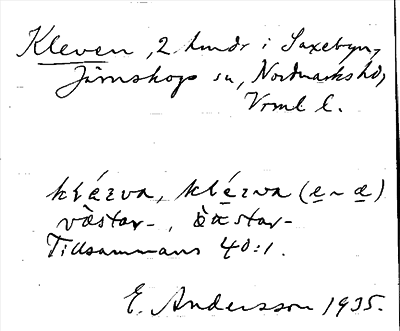 Kleven, 2 hmdr i Saxebyn,
Järnskogs sn, Nordmarks hd,
Vrml l.
klézva, klézva (e ~ æ)
västar-,ästar-
Tillsammans 40:1.
E. Andersson 1935.